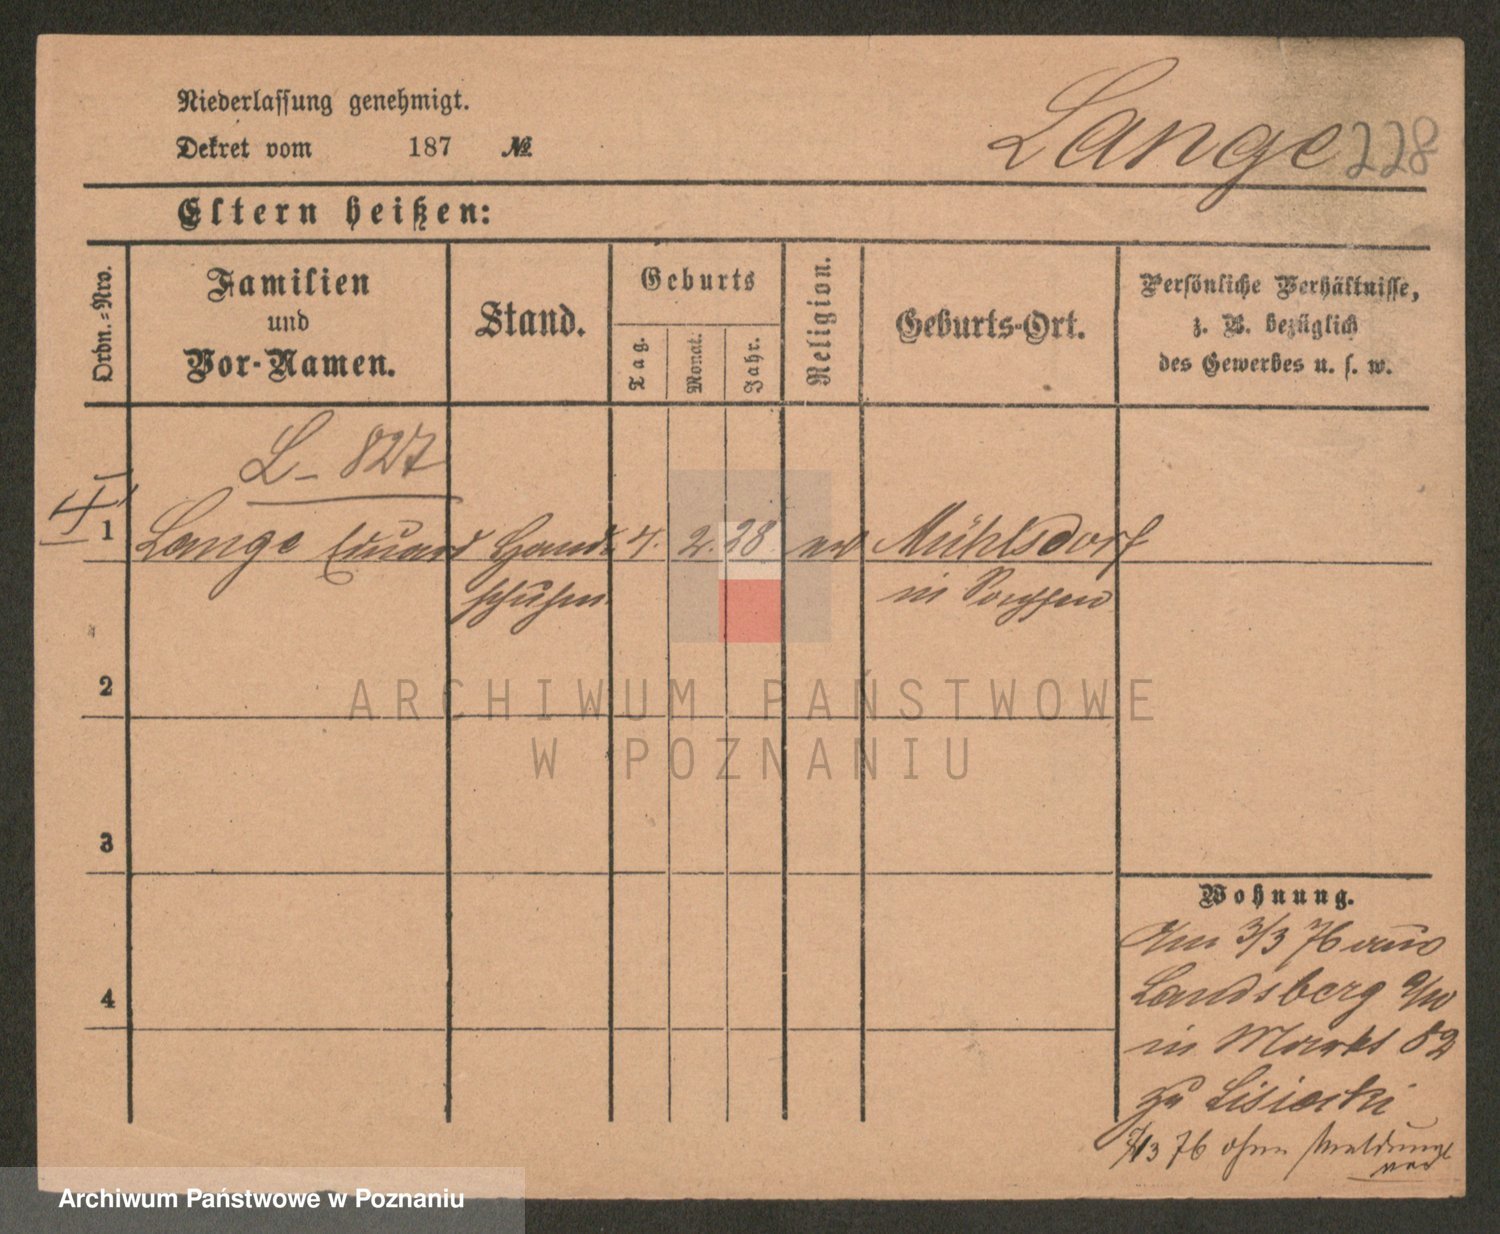 Niederlassung genehmigt.
Dekret vom 187 №
Lange 228
Eltern heißen:
Ordn.-Nro.
Familien
und
Vor-Namen.
Stand.
Geburts
Tag.
Monat.
Jahr.
Religion.
Geburts-Ort.
Persönliche Verhältnisse,
z. B. bezüglich
des Gewerbes u. s. w.
L- 827
1 Lange Eduard Hand- 4. 2. 28. ev Mühlsdorf
schuhm. in
2
ARCHIWUM PAŃSTWOWE
W POZNANIU
3
4
Wohnung.
Am 3/3 76 aus
Landsberg a/W
in Markt 82
zu Lisiecki
3 76 ohne Meldung
Archiwum Państwowe w Poznaniu